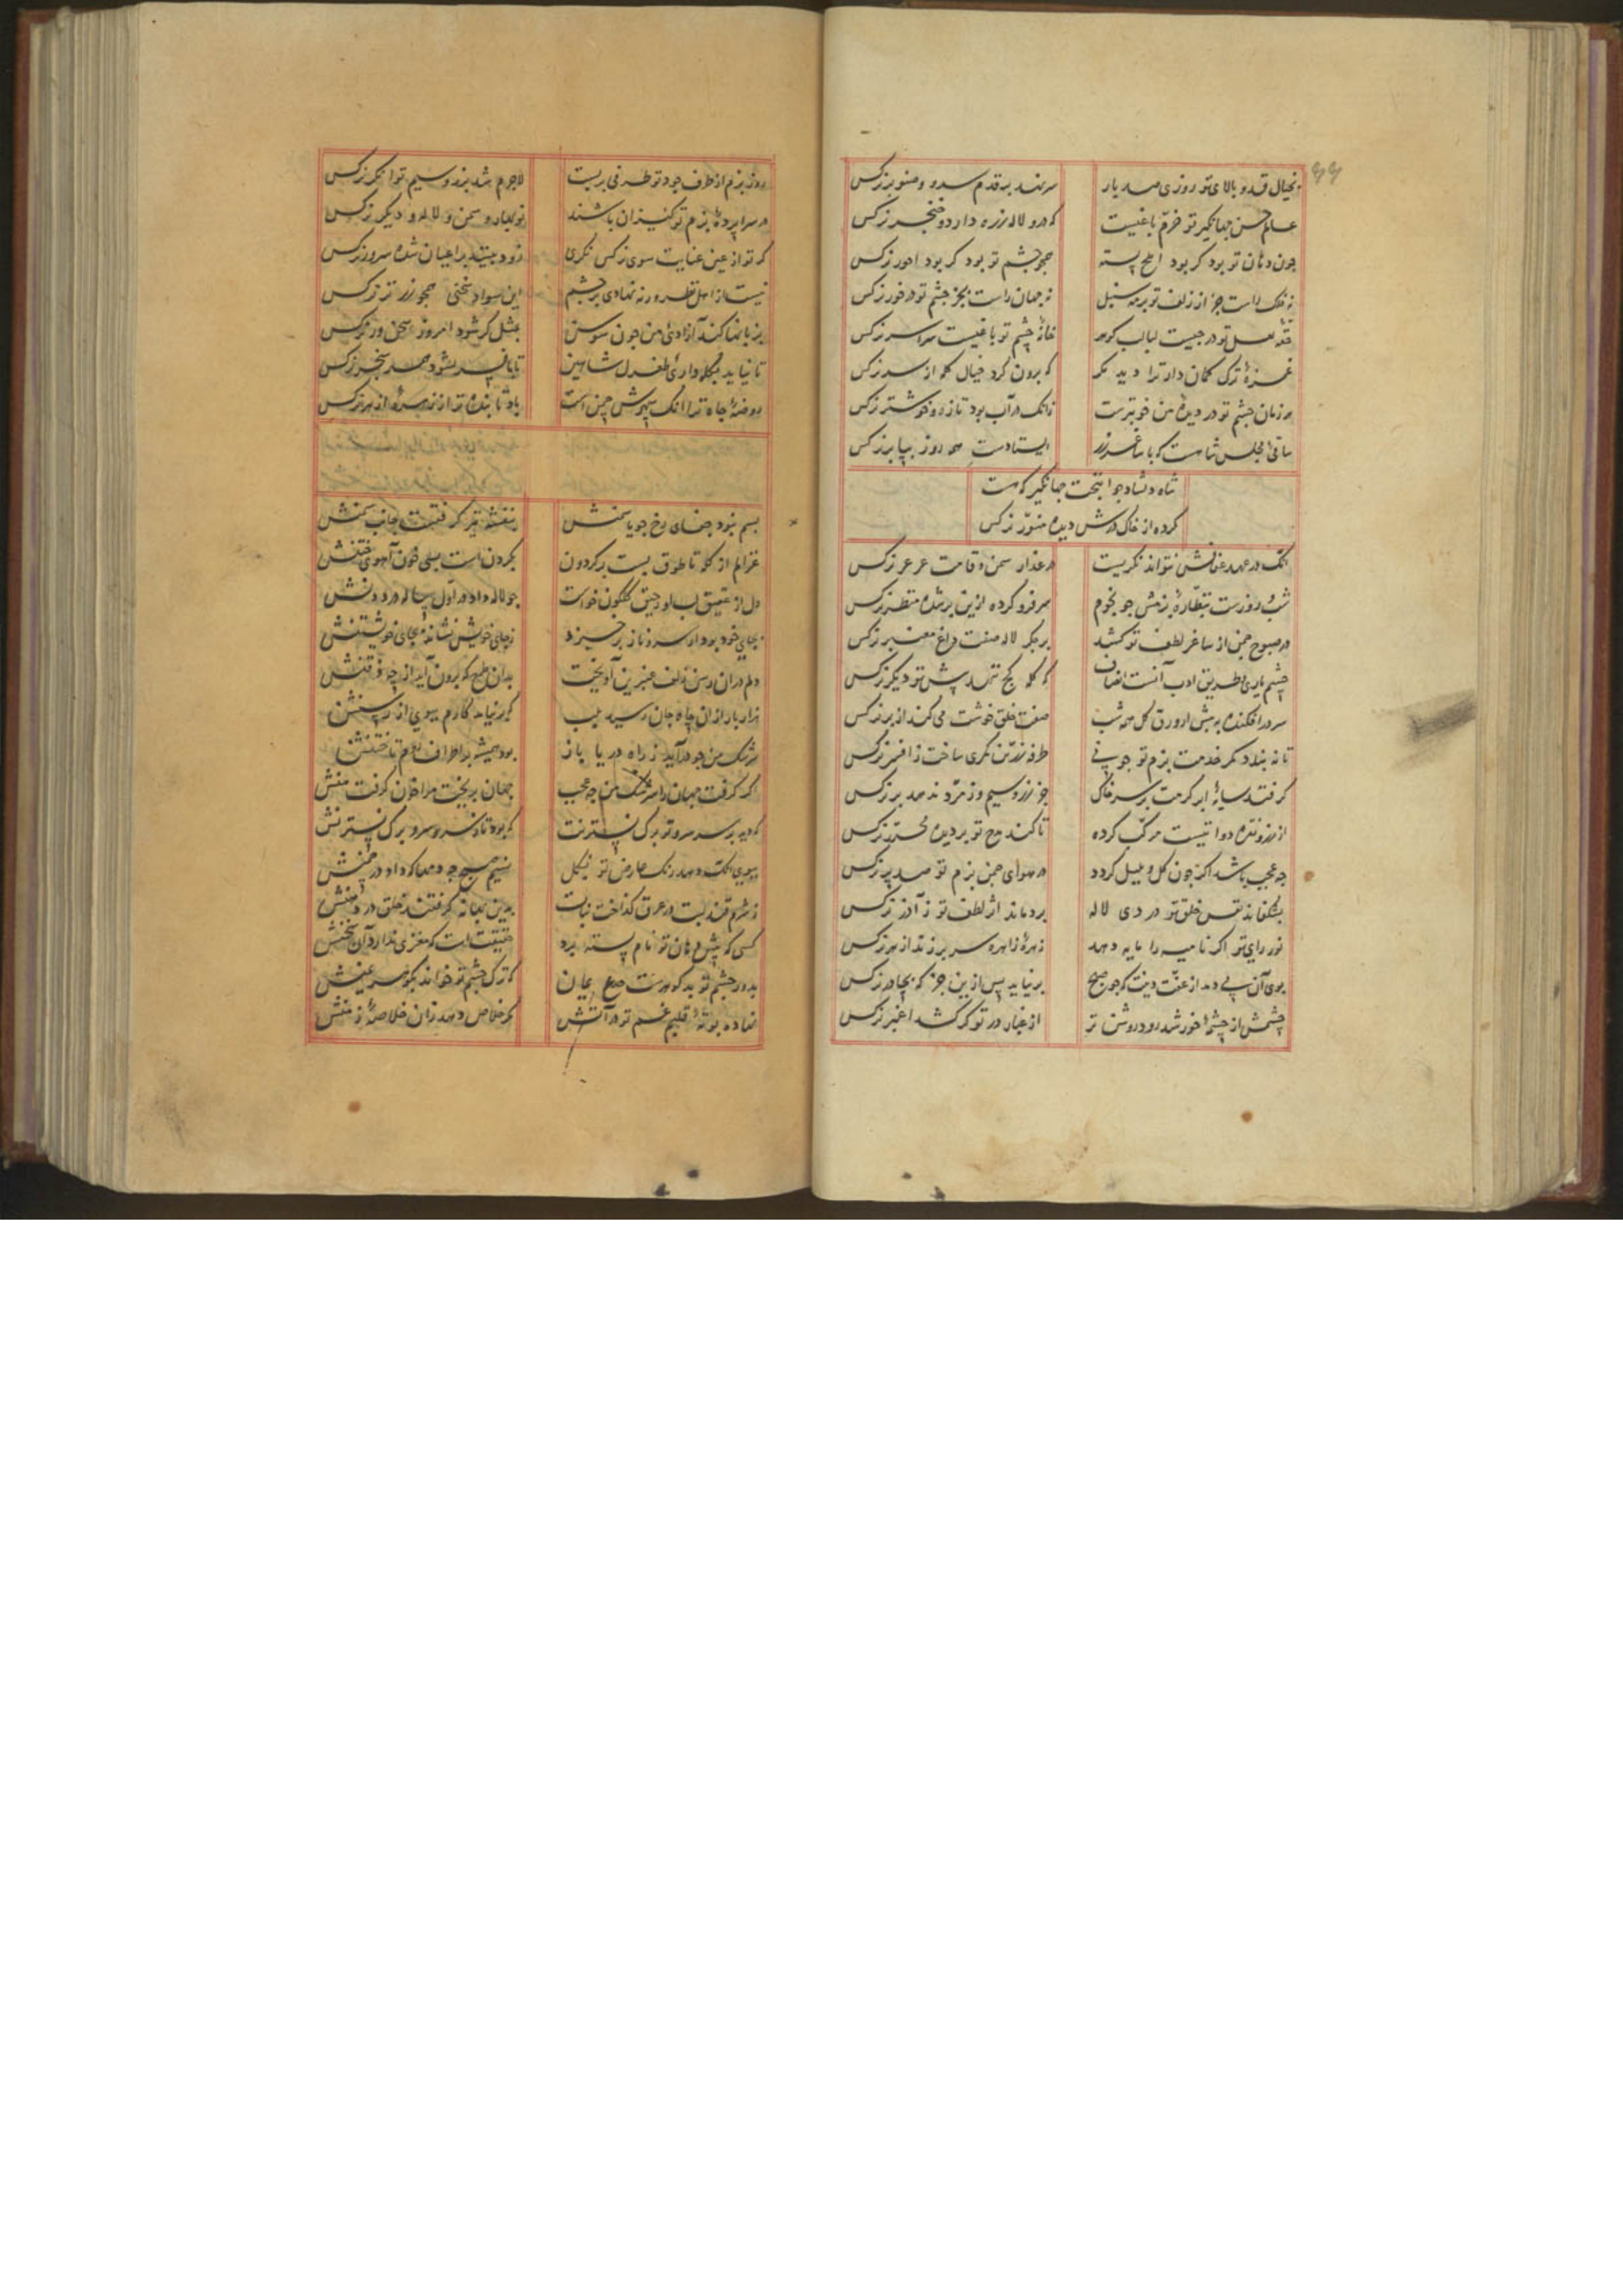 بخیال قد و بالای تو روزی صد بار سر نهد به قدم سرو و صنوبر نرکس
عالم حسن جهانکیر تو خرم باغیست که درو لاله زره دارد و خنجر نرکس
چون دهان تو بود کر بود املح پسته همچو چشم تو بود کر بود احور نرکس
نه فلک راست جز از زلف تو بر مه سنبل نه جهان راست بجز چشم تو در خور نرکس
حقه لعل تو درجیست لبالب کوهر خانهٔ چشم تو باغیست سراسر نرکس
غمزهٔ ترک کمان دار ترا دید مکر که برون کرد خیال کله از سر نرکس
هر زمان چشم تو در دیدهٔ من خوبترست زانک در آب بود تازه و خوشتر نرکس
ساقی مجلس شاهست که با ساغر زر ایستادست همه روز بپا بر نرکس
شاه دلشاد جوانبخت جهانکیر که هست
کرده از خاک درش دیده منور نرکس
آنک در عهد عفافش نتواند نکریست در عذار سمن و قامت عرعر نرکس
شب و روزست بنظارهٔ بزمش چو نجوم سر فرو کرده ازین بر شده منظر نرکس
در صبوح چمن از ساغر لطف تو کشد بر جکر لاله صفت داغ معنبر نرکس
چشم یاری بطریق ادب آنست انصاف که کله کج ننهد پیش تو دیکر نرکس
سر در افکنده به پیش از ورق کل همه شب صفت خلق خوشت می کند از بر نرکس
تا نه بندد کمر خدمت بزم تو چو نی طرفه زرین نکری ساخت ز افسر نرکس
کر فتد سایهٔ ابر کرمت بر سر خاک جز زر و سیم و زمرد ندهد بر نرکس
از زر و نقره دوا تیست مرکب کرده تا کند مدح تو بر دیده محرر نرکس
چه عجب باشد اکر چون کل و بلبل کردد در هوای چمن بزم تو صد پر نرکس
بشکفاند نفس خلق تو در دی لاله بردماند اثر لطف تو ز آذر نرکس
نور رای تو اکر نامیه را مایه دهد زهرهٔ زاهره سر برزند از هر نرکس
بوی آن پی دهد از عفت دینت که چو صبح برنیاید پس ازین جز که بچادر نرکس
چشمش از چشمهٔ خورشید رود روشن تر از غبار در تو کر کشد اغبر نرکس
روز بزم از طرف جود تو طرفی بربست لاجرم شد بزر و سیم توانکر نرکس
در سراپردهٔ بزم تو کنیزان باشند نوبهار و سمن و لاله و دیکر نرکس
کر تو از عین عنایت سوی نرکس نکری زود بینند بر اعیان شده سرور نرکس
نیست از اهل نظر ورنه نهادی بر چشم این سواد سخنی همچو زر تر نرکس
بزبانها کند آزادی من چون سوسن بمثل کر شود امروز سخن ور نرکس
تا نیاید بکله داری طغرل شاهین تا بافسر نشود همسر سنجر نرکس
روضهٔ جاه ترا آنک سپهرش چمن است باد تابنده تر از زهرهٔ ازهر نرکس
بسم نبود جفای رخ چو یاسمنش بنفشه نیز کرفتست جانب سمنش
غزالم از کله تا طوق بست بر کردون بکردن است بسی خون آهوی ختنش
دل از عقیق لب او رحیق کلکون خواست چو لاله داد در اول پیاله درد دنش
بجای خود بود ار سرو ناز برخیزد ز جای خویش نشاند بجای خویشتنش
دلم در آن رسن زلف عنبرین آویخت بدان طمع که برون آید از چه ذقنش
هزار بار از آن چاه جان رسید بلب که بر نیامد کارم بمویی از رسنش
سرشک من چو درآید ز راه دریا باز بود همیشه بر اطراف تاختنش
اکر کرفت جهان را سرشک من چه عجب جهان بریخت مرا خون کرفت منش
که دید بر سر سرو تو برک نسترنت که بود تاب سر و سرو برک نسترنش
ببوی آنک دهد رنک عارض تو بکل نسیم صبح چه دمها که داد در چمنش
ز شرم قند لبت در عرق کداخت نبات بدین بهانه کرفتند خلق در دهنش
کسی که پیش دهان تو نام پسته برد حقیقت است که مغزی ندارد آن سخنش
بدور چشم تو بد کوهرست صبح یمان که ترک چشم تو خواند بکوهر عینش
نهاده بوتهٔ قلبم غم تو در آتش مکر خلاص دهد زان خلاصهٔ زمنش